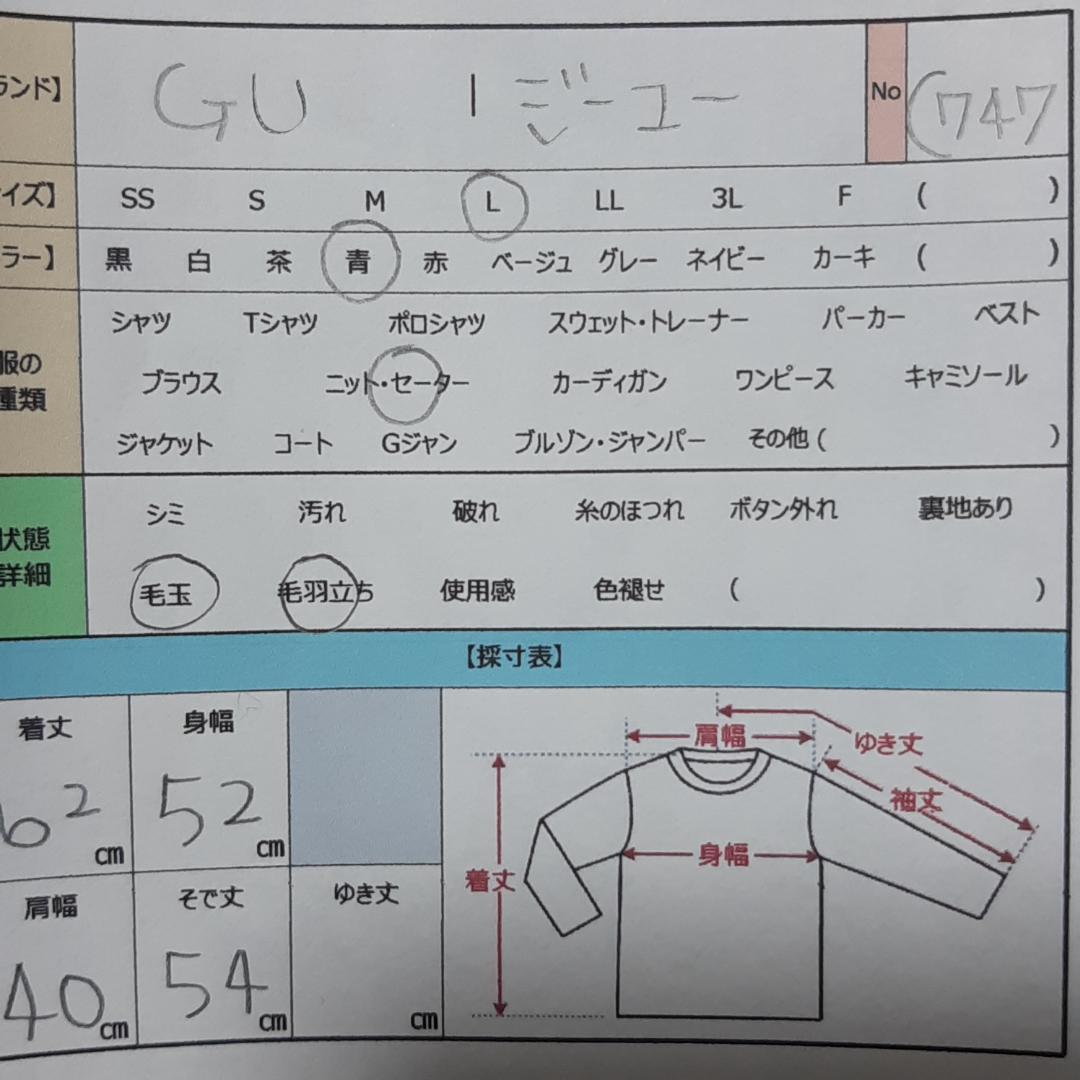 ランド】 GU | ジーユー No (747
イズ】 SS S M L LL 3L F ( )
ラー】 黒 白 茶 青 赤 ベージュ グレー ネイビー カーキ ( )
服の種類
シャツ Tシャツ ポロシャツ スウェット・トレーナー パーカー ベスト
ブラウス ニット・セーター カーディガン ワンピース キャミソール
ジャケット コート Gジャン ブルゾン・ジャンパー その他 ( )
状態詳細
シミ 汚れ 破れ 糸のほつれ ボタン外れ 裏地あり
毛玉 毛羽立ち 使用感 色褪せ ( )
【採寸表】
着丈 身幅
62 cm 52 cm
肩幅 そで丈 ゆき丈
40 cm 54 cm cm
肩幅 ゆき丈
袖丈
身幅
着丈